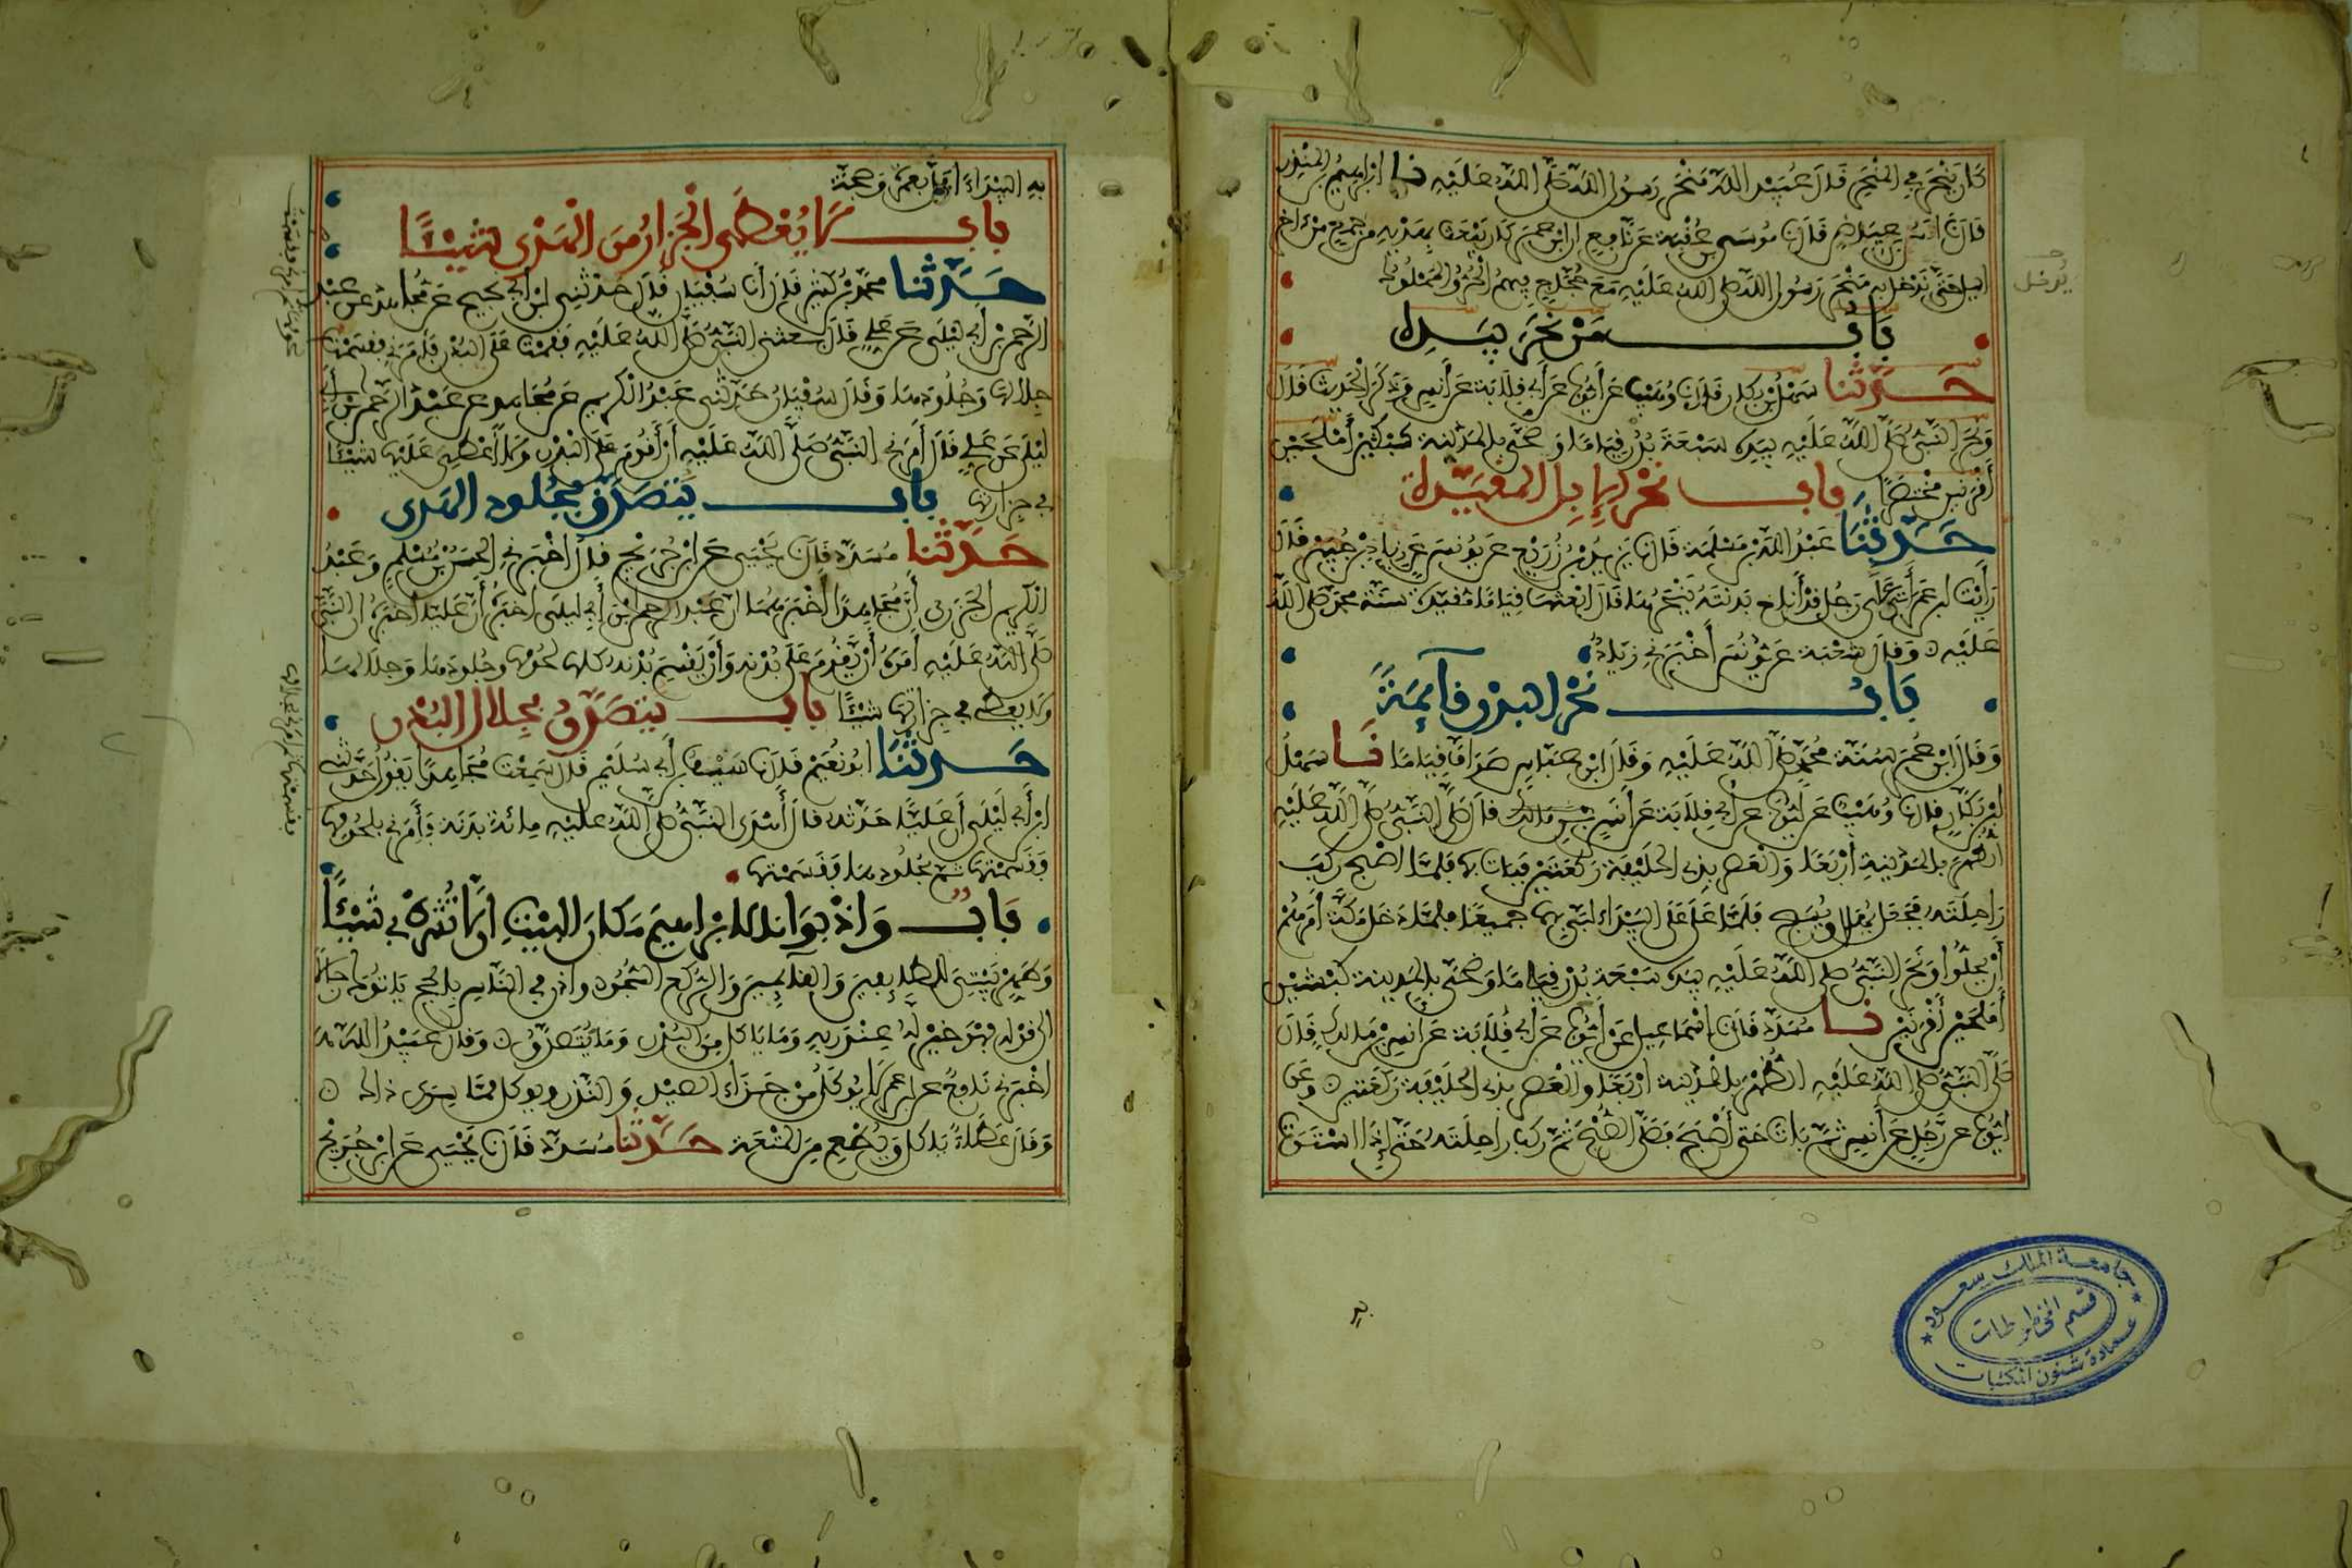 كان ينحر في المنحر قال عبيد الله منحر رسول الله صلى الله عليه نا إبراهيم بن المنذر
قال نا أنس بن عياض قال نا موسى بن عقبة عن نافع أن ابن عمر كان يبعث بهديه من جمع من آخر
الليل حتى يدخل به منحر رسول الله صلى الله عليه مع حجاج فيهم الحر والمملوك
يدخل
باب من نحر بيده
حدثنا سهل بن بكار قال نا وهيب عن أيوب عن أبي قلابة عن أنس وذكر الحديث قال
ونحر النبي صلى الله عليه بيده سبعة بدن قياما وضحى بالمدينة كبشين أملحين
أقرنين مختصرا باب نحر الإبل المقيدة
حدثنا عبد الله بن مسلمة قال نا يزيد بن زريع عن يونس عن زياد بن جبير قال
رأيت ابن عمر أتى على رجل قد أناخ بدنته ينحرها قال ابعثها قياما مقيدة سنة محمد صلى الله
عليه وقال شعبة عن يونس أخبرني زياد
باب نحر البدن قائمة
وقال ابن عمر سنة محمد صلى الله عليه وقال ابن عباس صواف قياما نا سهل
بن بكار قال نا وهيب عن أيوب عن أبي قلابة عن أنس بن مالك قال صلى النبي صلى الله عليه
الظهر بالمدينة أربعا والعصر بذي الحليفة ركعتين فبات بها فلما أصبح ركب
راحلته فجعل يهلل ويسبح فلما علا على البيداء لبى بهما جميعا فلما دخل مكة أمرهم
أن يحلوا ونحر النبي صلى الله عليه بيده سبعة بدن قياما وضحى بالمدينة كبشين
أملحين أقرنين نا مسدد قال نا إسماعيل عن أيوب عن أبي قلابة عن أنس بن مالك قال
صلى النبي صلى الله عليه الظهر بالمدينة أربعا والعصر بذي الحليفة ركعتين وعن
أيوب عن رجل عن أنس ثم بات حتى أصبح فصلى الصبح ثم ركب راحلته حتى إذا استوت
جامعة الملك سعود
قسم المخطوطات
عمادة شئون المكتبات
به البيداء أهل بعمرة وحجة
باب لا يعطى الجزار من الهدي شيئا
حدثنا محمد بن كثير قال أنا سفيان قال حدثني ابن أبي نجيح عن مجاهد عن عبد
الرحمن بن أبي ليلى عن علي قال بعثني النبي صلى الله عليه فقمت على البدن فأمرني فقسمت
جلالها وجلودها وقال سفيان حدثني عبد الكريم عن مجاهد عن عبد الرحمن بن أبي
ليلى عن علي قال أمرني النبي صلى الله عليه أن أقوم على البدن ولا أعطي عليها شيئا
في جزارتها باب يتصدق بجلود الهدي
حدثنا مسدد قال نا يحيى عن ابن جريج قال أخبرني الحسن بن مسلم وعبد
الكريم الجزري أن مجاهدا أخبرهما أن عبد الرحمن بن أبي ليلى أخبره أن عليا أخبره أن النبي
صلى الله عليه أمره أن يقوم على بدنه وأن يقسم بدنه كلها لحومها وجلودها وجلالها
ولا يعطي في جزارتها شيئا باب يتصدق بجلال البدن
حدثنا أبو نعيم قال نا سيف بن أبي سليم قال سمعت مجاهدا يقول حدثني
ابن أبي ليلى أن عليا حدثه قال أهدى النبي صلى الله عليه مائة بدنة فأمرني بلحومها
فقسمتها ثم بجلودها فقسمتها
باب وإذ بوأنا لإبراهيم مكان البيت أن لا تشرك بي شيئا
وطهر بيتي للطائفين والقائمين والركع السجود وأذن في الناس بالحج يأتوك رجالا
إلى قوله فهو خير له عند ربه وما يأكل من البدن وما يتصدق وقال عبيد الله
أخبرني نافع عن ابن عمر لا يؤكل من جزاء الصيد والنذر ويؤكل مما سوى ذلك
وقال عطاء يأكل ويطعم من المتعة حدثنا مسدد قال نا يحيى عن ابن جريج